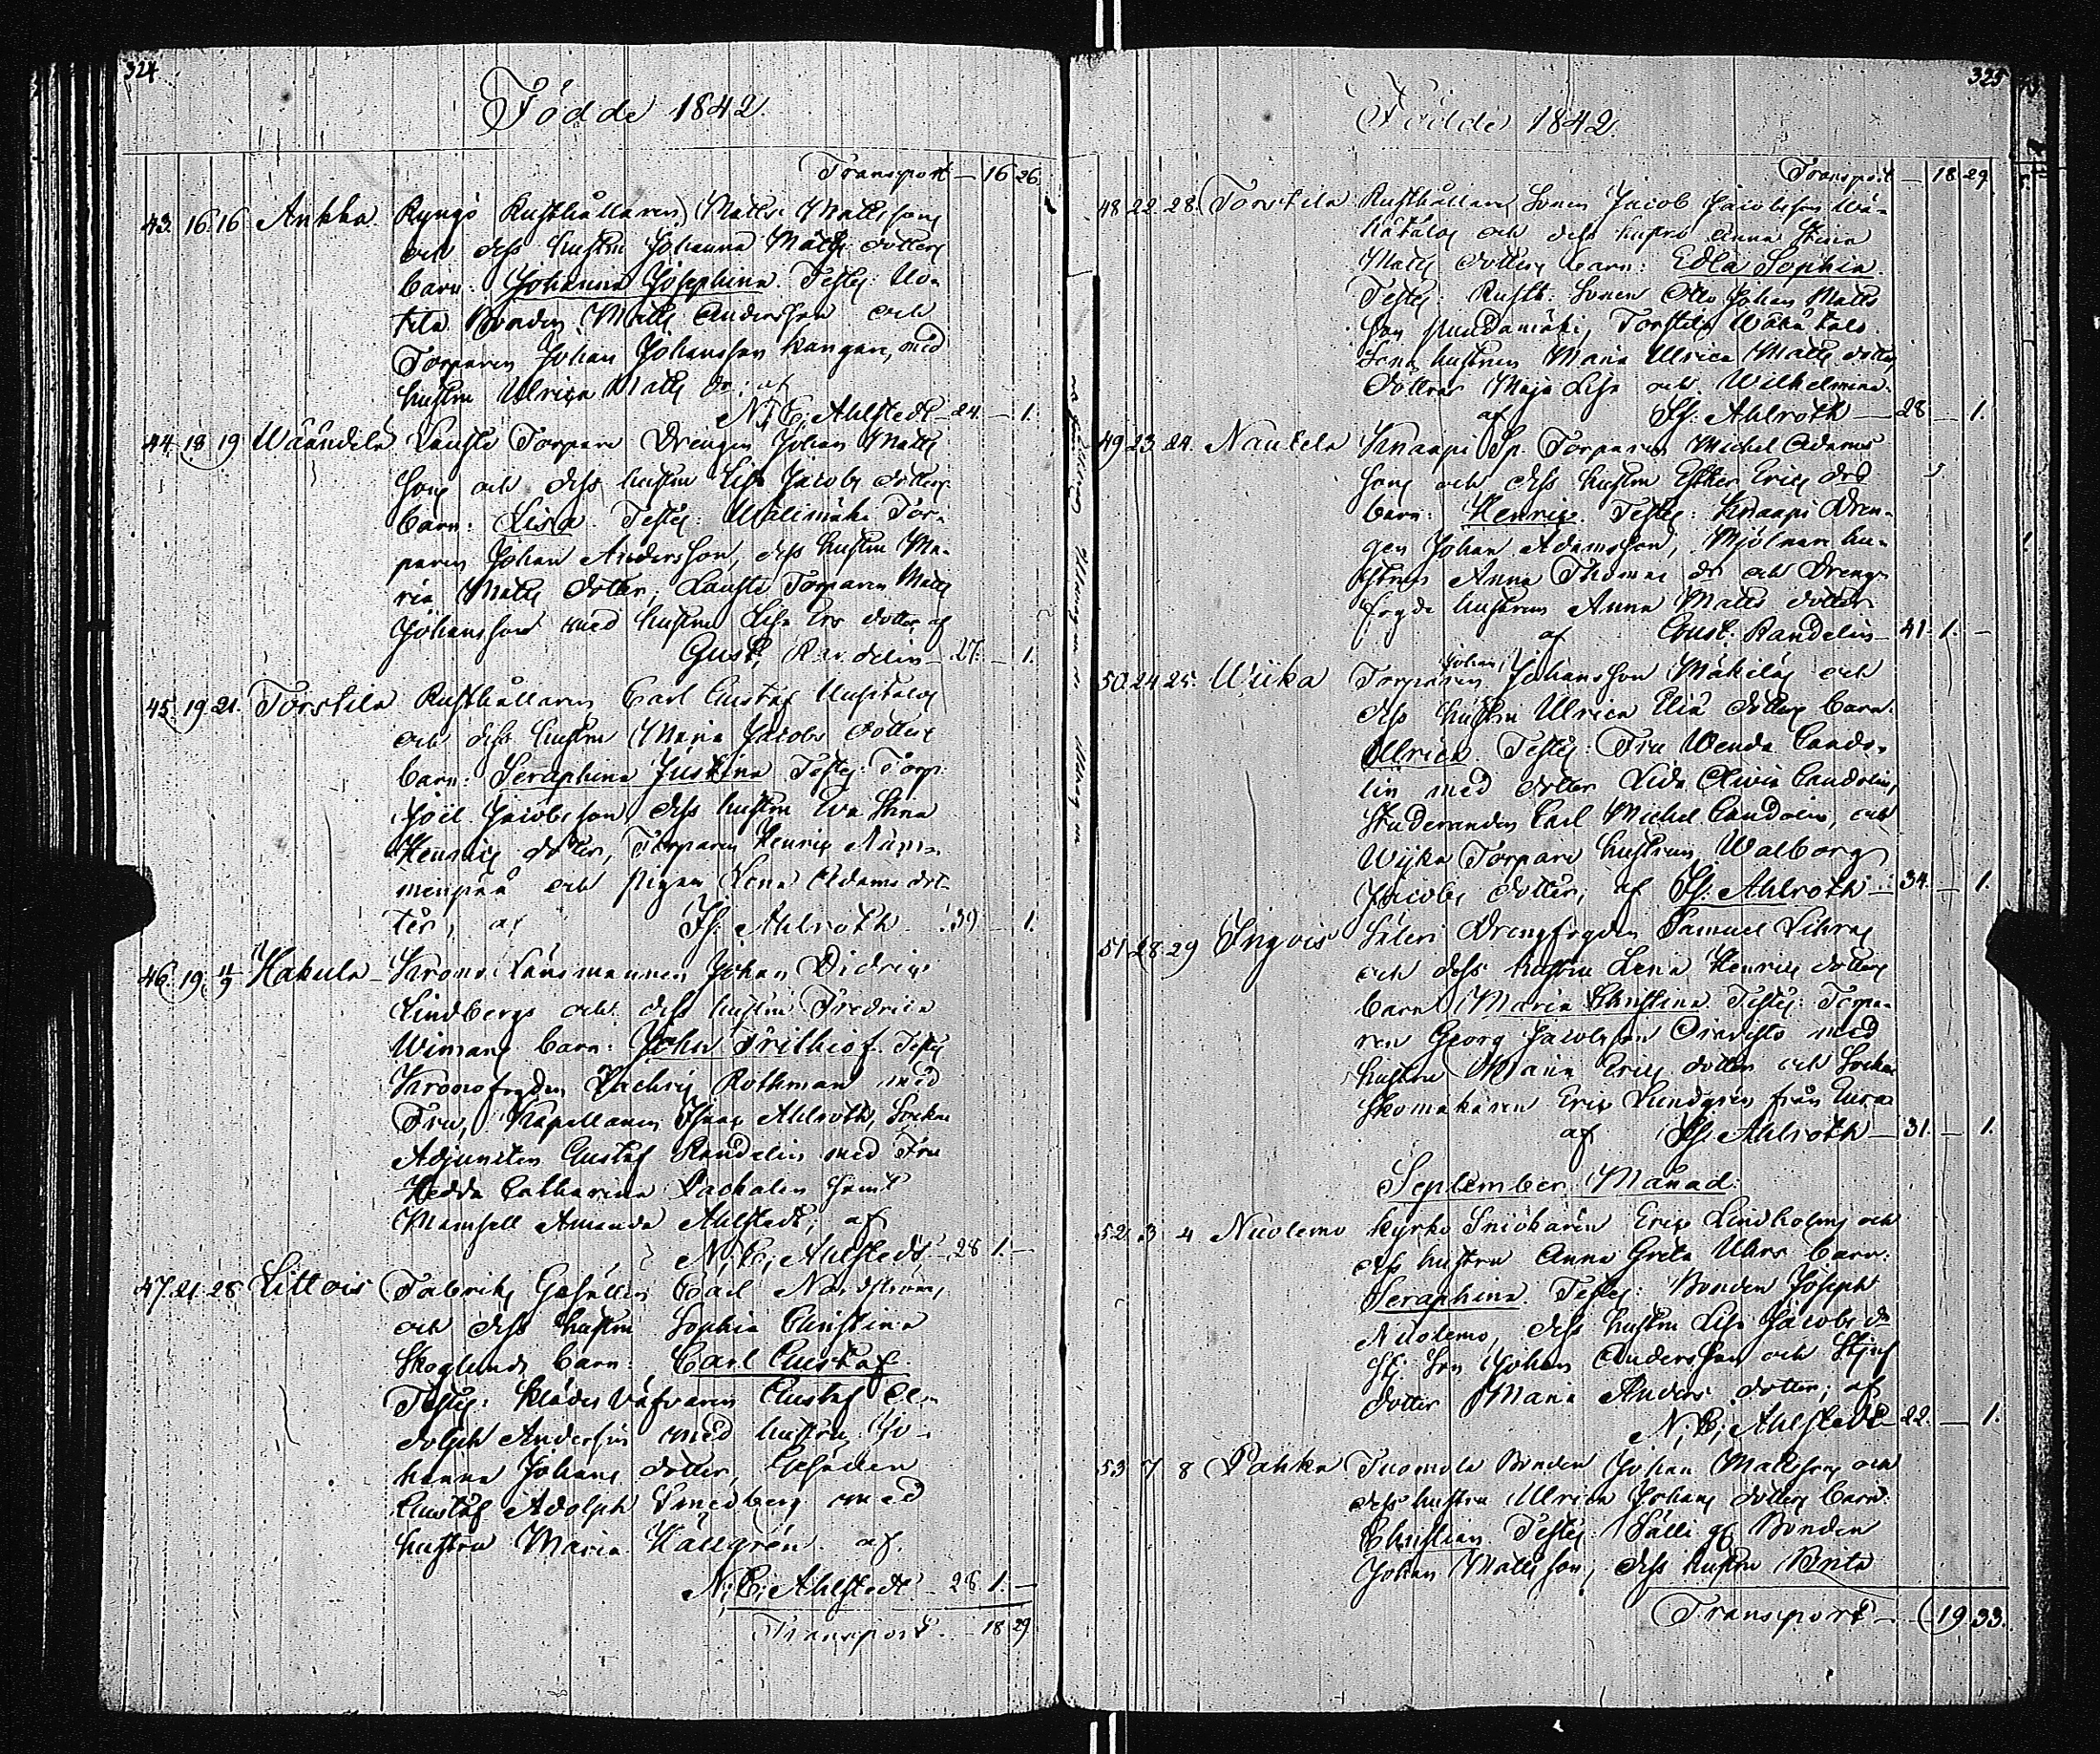 324
Födde 1842.
Transport — 16 26
43. 16. 16 Ankka. Kyngö Rusthållaren Matts Mattssons
och dess hustru Johanna Matts dotters
barn: Johanna Josephina. Testes:
Bonden Matts Andersson och
Torparen Johan Johansson Kangare, med
hustru Ulrica Matts dr: af
N; C; Ahlstedt — 24. — 1.
44. 18. 19 Wäändelä Lausti Torpare Drengen Johan Matts
sons och dess hustru Lisa Jacobs dotters
barn: Lisa. Testes: Wälimäki Tor-
paren Johan Andersson, dess hustru Ma-
ria Matts dotter, Lausti Torparen Matts
Johansson med hustru Lisa Ers dotter, af
Gust. Randelin — 27. — 1.
45. 19. 21. Torstila Rusthållaren Carl Gustaf Uusitalos
och dess hustru Maria Jacobs dotters
barn: Seraphina Justina Testes: Torp:
Joel Jacobsson dess hustru Eva Stina
Henrics dotter, Torparen Henric
och pigan Lena Adams dot-
ter, af Is: Ahlroth. 39 — 1.
46. 19. 4/9 Hakula — Krono Länsmannen Johan Didric
Lindbergs och dess hustru Fredrica
Wimans barn: John Frithiof. Testes
Kronofogden Zachris Rothman med
Fru, Kapellanen Isaac Ahlroth, Sockne
Adjuncten Gustaf Randelin med Fru
Hedda Catharina Zachalin samt
Mamsell Amanda Ahlstedt, af
N; C; Ahlstedt, — 28 1. —
47. 21. 28 Littois Fabriks Gesällen Carl Nordströms
och dess hustru Sophia Christina
Skoglunds barn: Carl Gustaf.
Testes: Klädes Väfvaren Gustaf A-
dolph Andersin med hustru Jo-
hanna Johans dotter, Gesällen
Gustaf Adolph Smedberg med
hustru Maria Källgrén. af.
N; C; Ahlstedt — 28 1. —
Transport. — 18 29
325
Födde 1842.
Transport — 18 29.
48 22. 28. Torstila Rusthållare Sonen Jacob Jacobsson Wä-
hätalos och dess hustru Anna Stina
Matts dotters barn: Edla Sophia.
Testes: Rusth: Sonen Otto Johan Matts
son Torstila Wähä talo
Sons hustrun Maria Ulrica Matts dotter,
Dottrar Maja Lisa och Wilhelmina.
af Is: Ahlroth — 28 — 1.
49 23. 24. Nautela Knaapi Sp. Torparen Michel Adams
sons och dess hustru Esther Erics drs
barn: Henric. Testes: Knaapi Dren-
gen Johan Adamsson, Mjölnare hu-
strun Anna Thomas dr och Drengs
fogde hustrun Anna Matts dotter
af Gust: Randelin — 41. 1. —
50. 24 25. Wiika Torparen Johan Johansson Mäkiläs och
dess hustru Ulrica Eliæ dotters barn.
Ulrica Testes: Fru Wenda Cando-
lin med dotter Lida Olivia Candolin,
Studeranden Carl Michel Candolin, och
Wiika Torpare hustrun Walborg
Jacobs dotter, af Is: Ahlroth — 34. — 1.
51 28. 29 Ingois Säteri Drengfogden Samuel
och dess hustru Lena Henrics dotters
barn Maria Christina. Testes: Torpa-
ren Georg Jacobsson med
hustru Maria Erics dotter och Sockne
Skomakaren Eric Lundgrén från Eura
af Is: Ahlroth — 31. — 1.
September Månad.
52. 3 4 Nuolemo Kyrko Snickaren Eric Lindholms och
dess hustru Anna Greta Uhrs barn:
Seraphina. Testes: Bonden Joseph
Nuolemo, dess hustru Lisa Jacobs dr
Stj: Son Johan Andersson och Stjuf
dotter Maria Anders dotter; af
N; C; Ahlstedt — 22. — 1.
53 7 8 Pahka Tuomola Bonden Johan Mattssons och
dess hustru Ulrica Johans dotters barn:
Christian Testes: Bonden
Johan Mattsson, dess hustru Brita
Transport — 19 33.